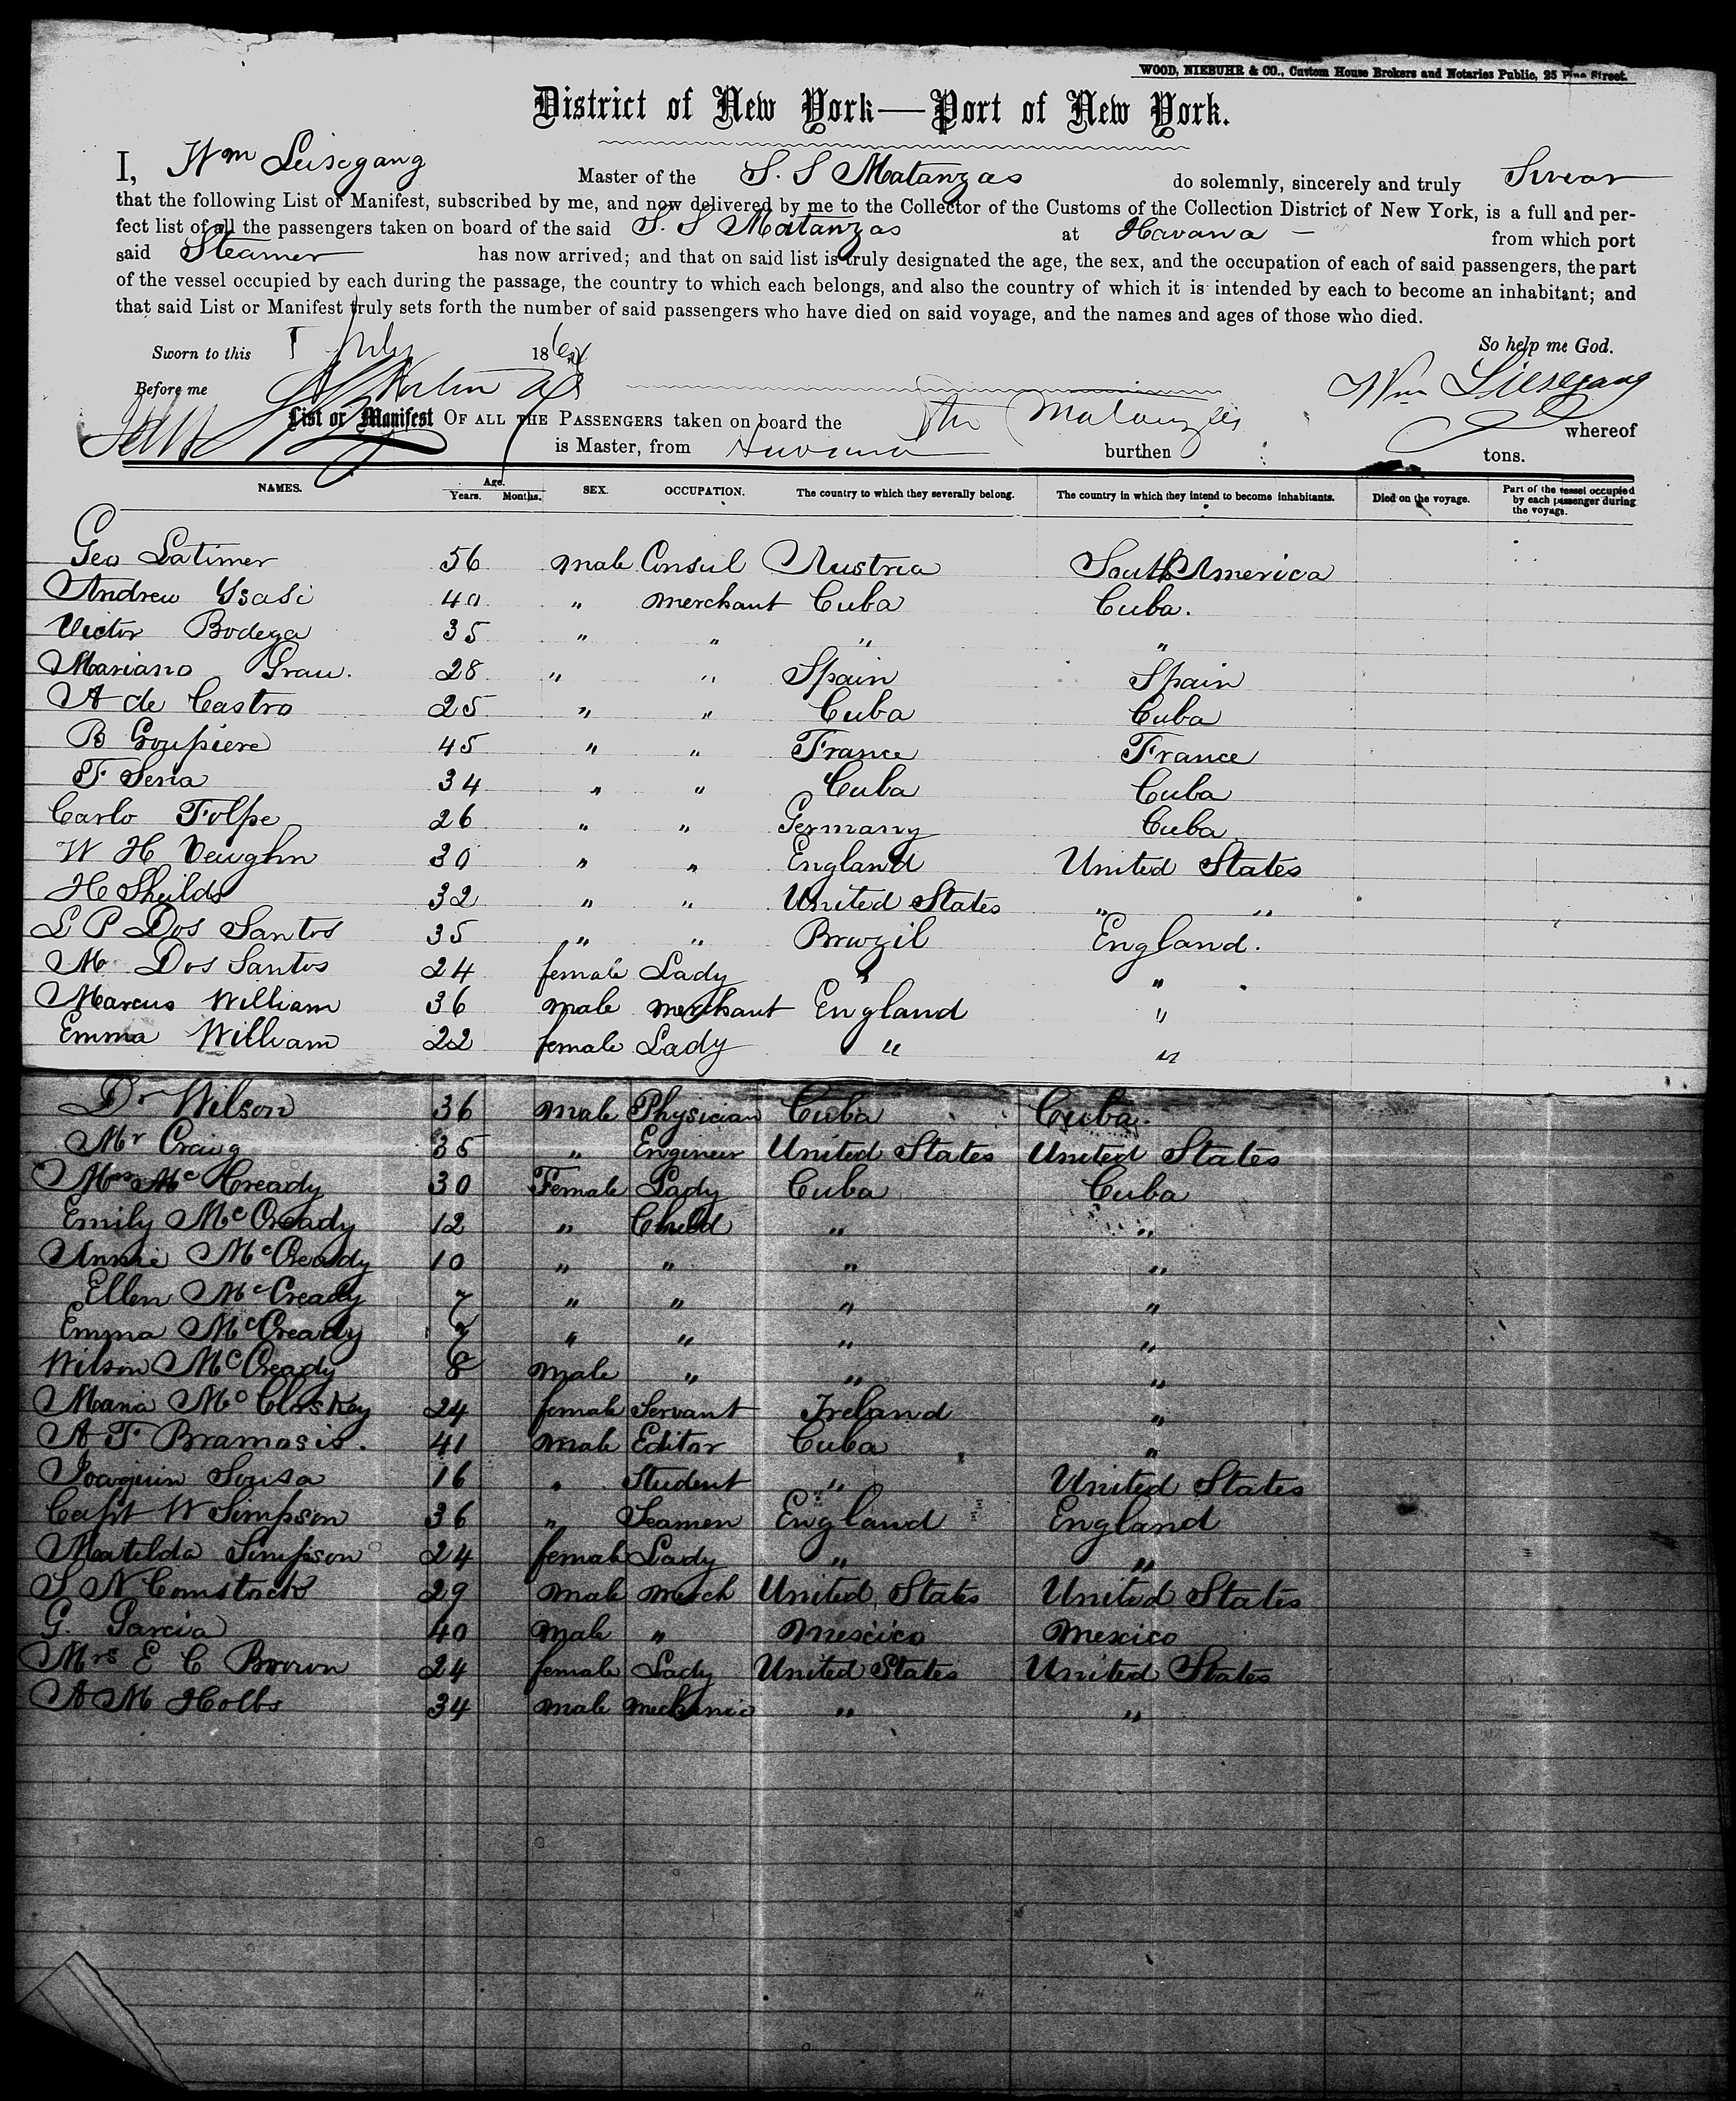 WOOD, NIEBUHR & CO., Custom House Brokers and Notaries Public, 25 Pine Street.
District of New York—Port of New York.
I, Wm Leisegang Master of the S. S Matanzas do solemnly, sincerely and truly Swear
that the following List or Manifest, subscribed by me, and now delivered by me to the Collector of the Customs of the Collection District of New York, is a full and per-
fect list of all the passengers taken on board of the said S. S Matanzas at Havana — from which port
said Steamer has now arrived; and that on said list is truly designated the age, the sex, and the occupation of each of said passengers, the part
of the vessel occupied by each during the passage, the country to which each belongs, and also the country of which it is intended by each to become an inhabitant; and
that said List or Manifest truly sets forth the number of said passengers who have died on said voyage, and the names and ages of those who died.
Sworn to this July 186 So help me God.
Before me Wm Liesegang
List or Manifest OF ALL THE PASSENGERS taken on board the Str Matanzas whereof
is Master, from Havana burthen tons.
NAMES. Age. Years. Months. SEX. OCCUPATION. The country to which they severally belong. The country in which they intend to become inhabitants. Died on the voyage. Part of the vessel occupied by each passenger during the voyage.
Geo Latimer 56 male Consul Austria South America
Andrew Ysasi 40 " merchant Cuba Cuba.
Victor Bodega 35 " " " "
Mariano Grau. 28 " " Spain Spain
A de Castro 25 " " Cuba Cuba
B Goupiere 45 " " France France
F Sena 34 " " Cuba Cuba
Carlo Folpe 26 " " Germany Cuba
W H Veughn 30 " " England United States
H Sheilds 32 " " United States " "
L P Dos Santos 35 " " Brazil England.
M Dos Santos 24 female Lady " "
Marcus William 36 male merchant England "
Emma William 22 female Lady " "
Dr Wilson 36 male Physician Cuba Cuba.
Mr Craig 35 " Engineer United States United States
Mrs McCready 30 Female Lady Cuba Cuba
Emily McCready 12 " Child " "
Annie McCready 10 " " " "
Ellen McCready 7 " " " "
Emma McCready 7 " " " "
Wilson McCready 8 male " " "
Maria McCloskey 24 female Servant Ireland "
A F Bramosio. 41 male Editor Cuba "
Joaquin Sousa 16 " Student " United States
Capt W Simpson 36 " Seamen England England
Matilda Simpson 24 female Lady " "
S N Comstock 29 male merch United States United States
G. Garcia 40 male " Mexico Mexico
Mrs E C Brown 24 female Lady United States United States
A M Holbs 34 male mechanic " "